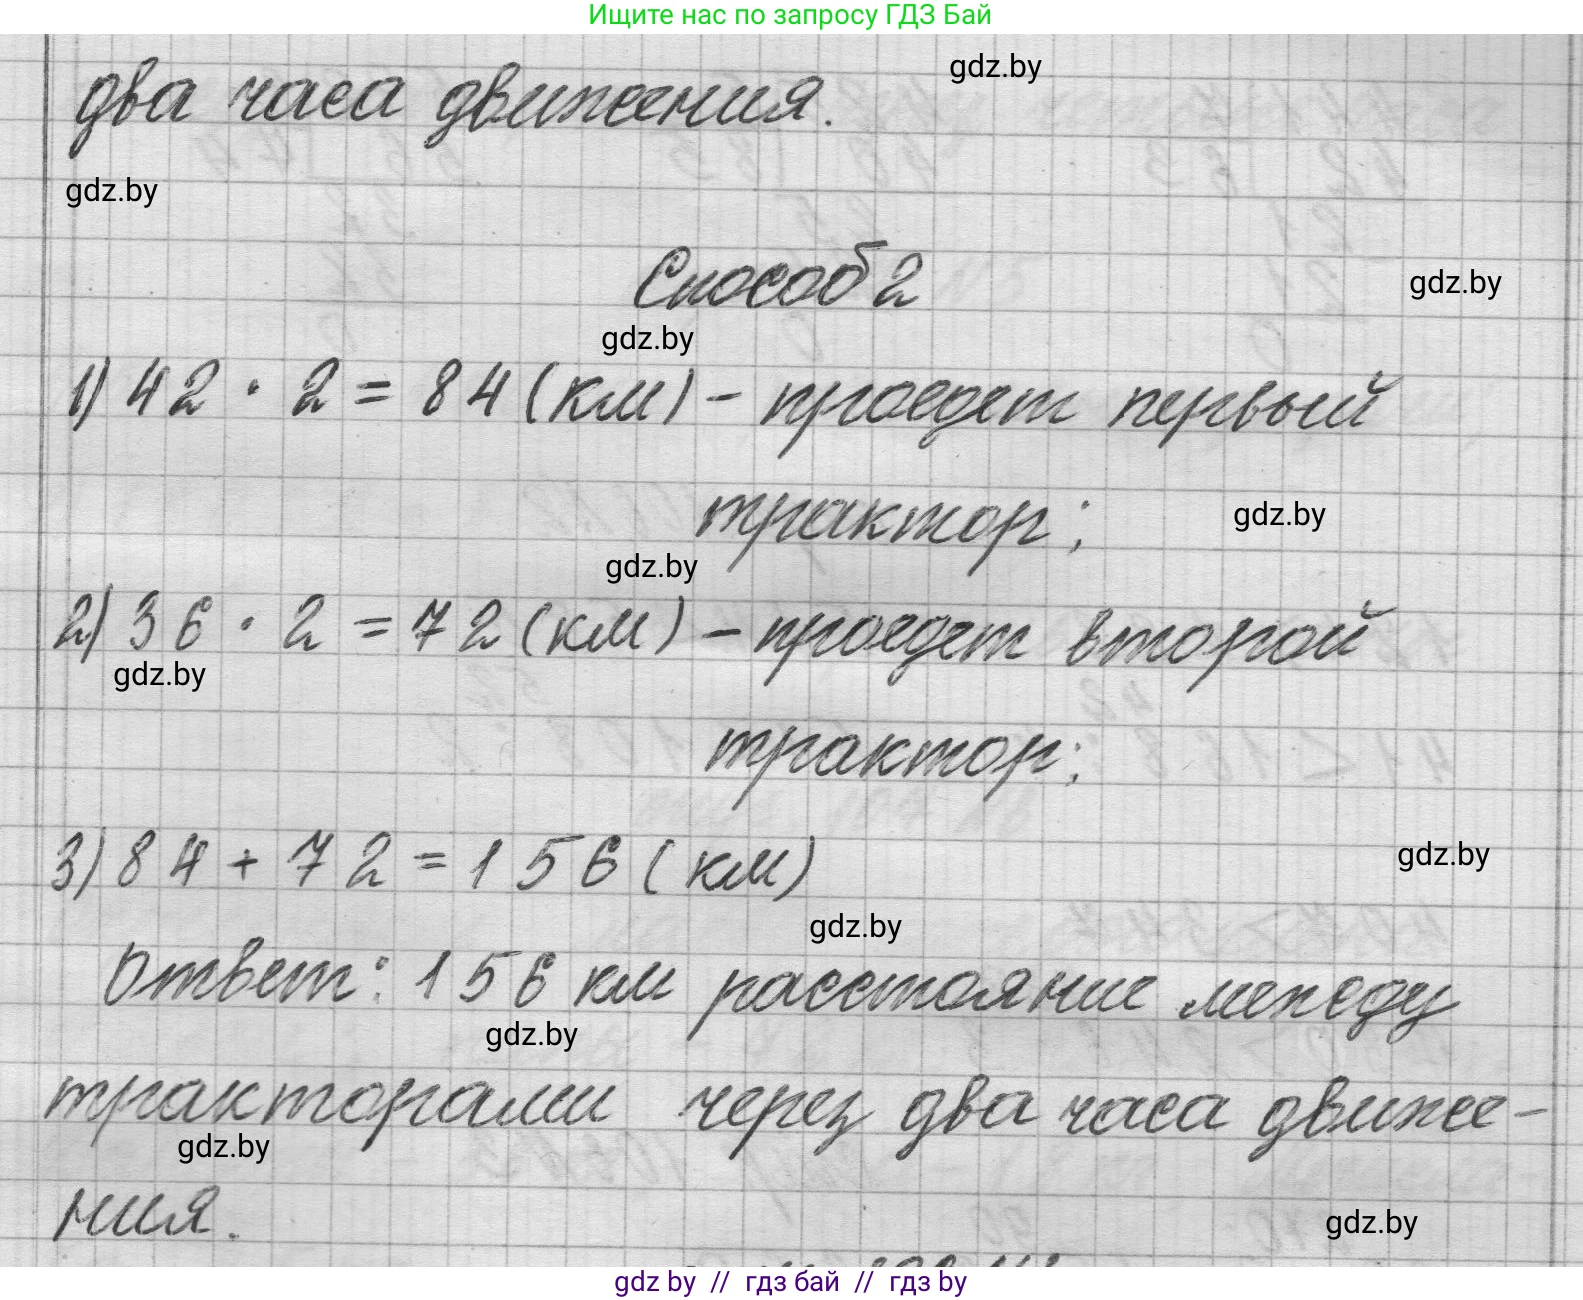 Ищите нас по запросу ГДЗ Бай
gdz.by
два часа движения.
gdz.by
Способ 2
gdz.by
gdz.by
1) 42 · 2 = 84 (км) – проедет первый
трактор;
gdz.by
gdz.by
2) 36 · 2 = 72 (км) – проедет второй
gdz.by
трактор;
3) 84 + 72 = 156 (км)
gdz.by
gdz.by
Ответ: 156 км расстояние между
gdz.by
тракторами через два часа движе-
gdz.by
ния.
gdz.by
gdz by // гдз бай // гдз by